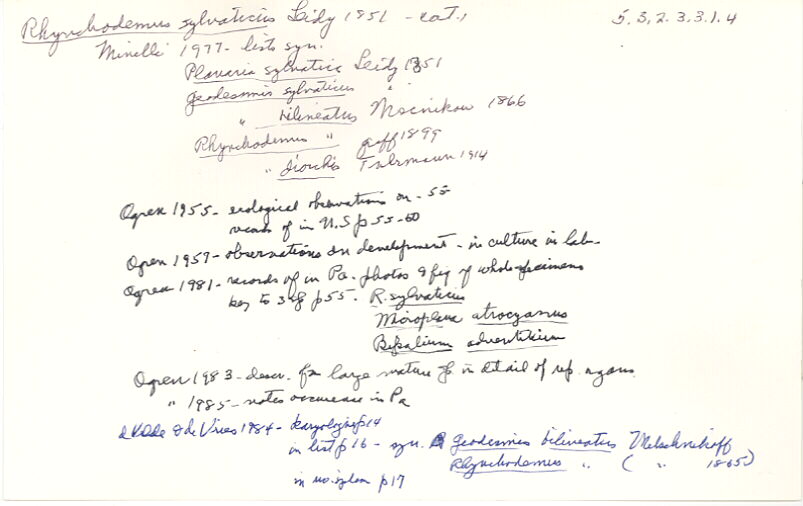 Rhynchodemus sylvaticus Leidy 1851 - cat.,
5.3.2.3.3.1.4
Minelli 1977 - lists syn.
Planaria sylvatica Leidy 1851
Geodesmus sylvaticus "
" bilineatus Mecnikow 1866
Rhynchodemus " Graff 1899
" Fuhrmann 1914
Ogren 1955 - ecological observations on - 55
records of in U.S p 55-60
Ogren 1957 - observations on development - in culture in lab.
Ogren 1981 - records of in Pa. photos & fig of whole specimens
key to 3 of p 55. R. sylvaticus
Microplana atrocyaneus
Bipalium adventitium
Ogren 1983 - descr. for large mature in detail of rep. organs
" 1985 - notes occurence in Pa
& de Vries 1984 - karyology p 14
in list p 16 - syn. Geodesmus bilineatus Metschnikoff
Rhynchodemus " ( " 1865)
in p 17